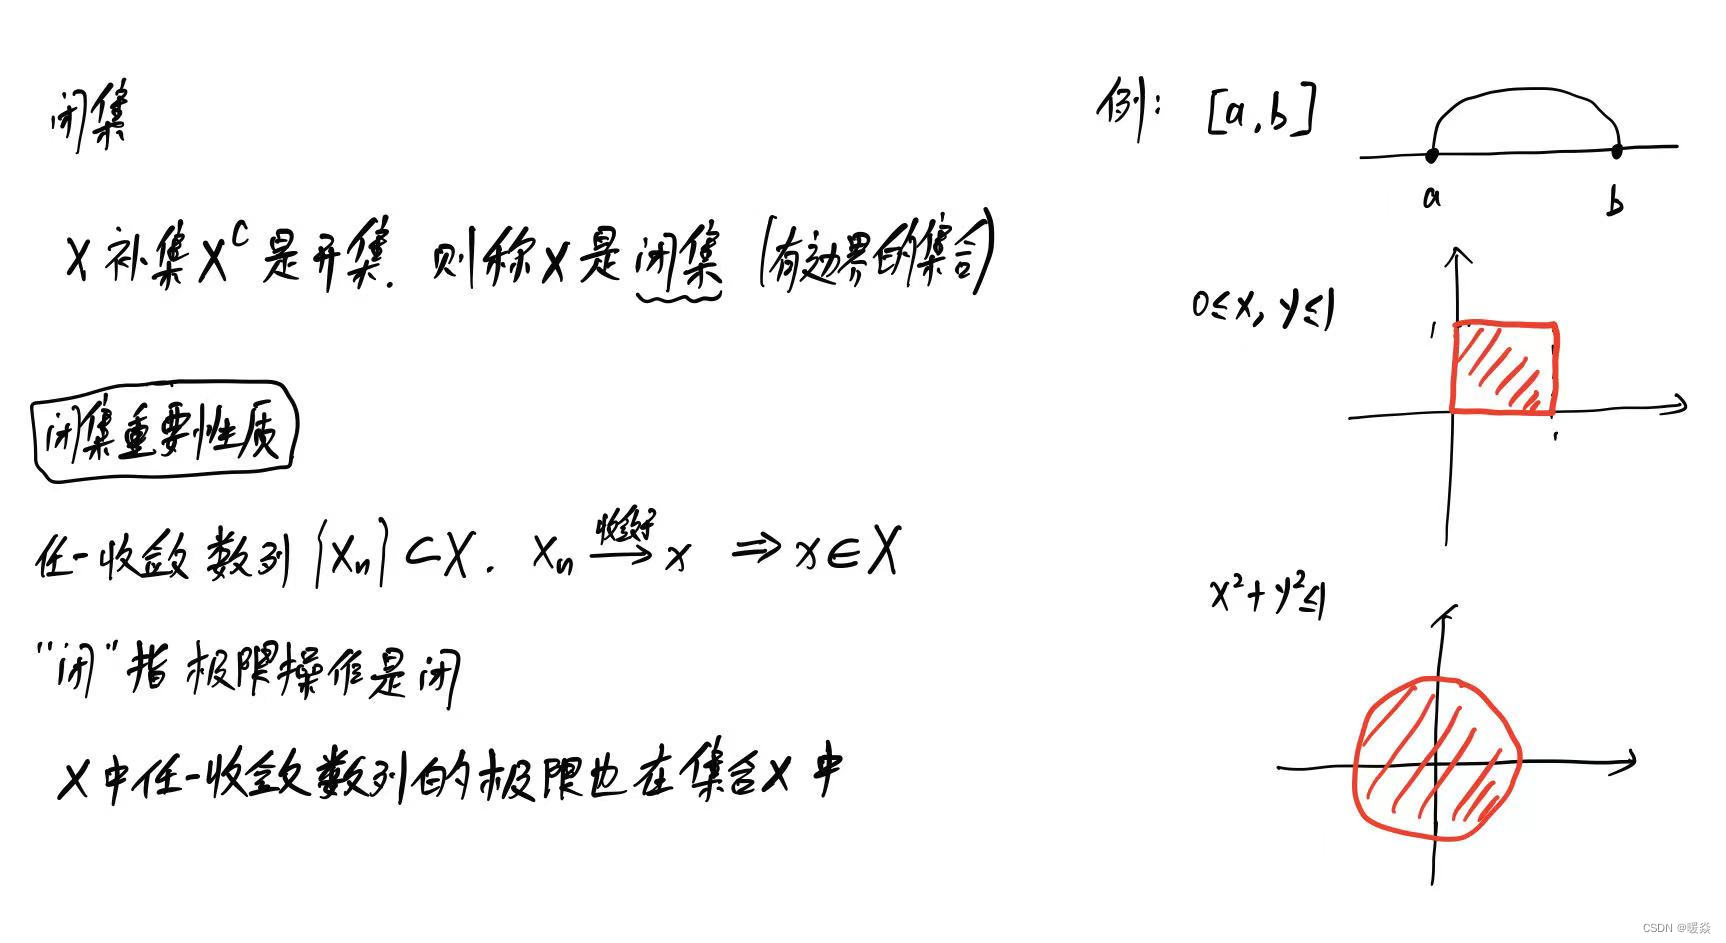 闭集
X 补集 X^c 是开集. 则称 X 是闭集 (有边界的集合)
闭集重要性质
任一收敛数列 {Xn} ⊂ X. Xn 收敛于→ x ⇒ x ∈ X
"闭"指极限操作是闭
X 中任一收敛数列的极限也在集合 X 中
例: [a,b]
a b
0≤x, y≤1
1
1
x²+y²≤1
CSDN @暖焱